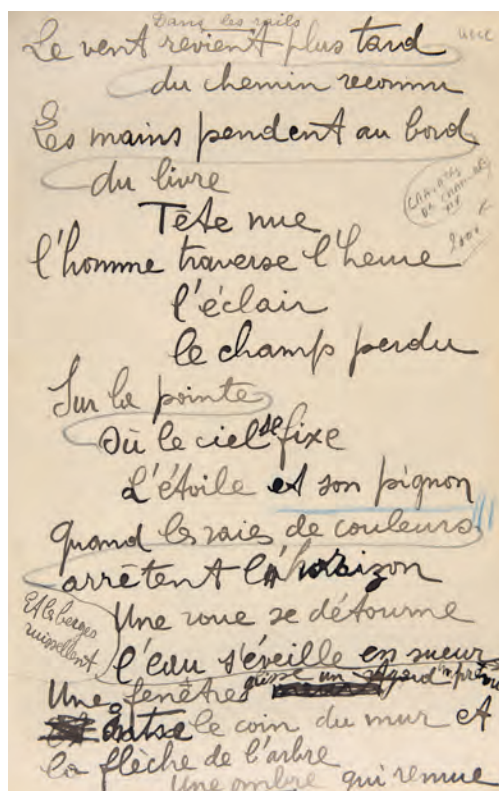 Dans les rails
Le vent revient plus tard
du chemin reconnu
Les mains pendent au bord
du livre
Tête nue
l'homme traverse l'heure
l'éclair
le champ perdu
Sur la pointe
Où le ciel se fixe
L'étoile et son pignon
Quand les raies de couleurs
arrêtent l'horizon
Et les berges
ruissellent
Une roue se détourne
l'eau s'éveille en sueur
Une fenêtres un
le coin du mur et
la flèche de l'arbre
Une ombre qui remue